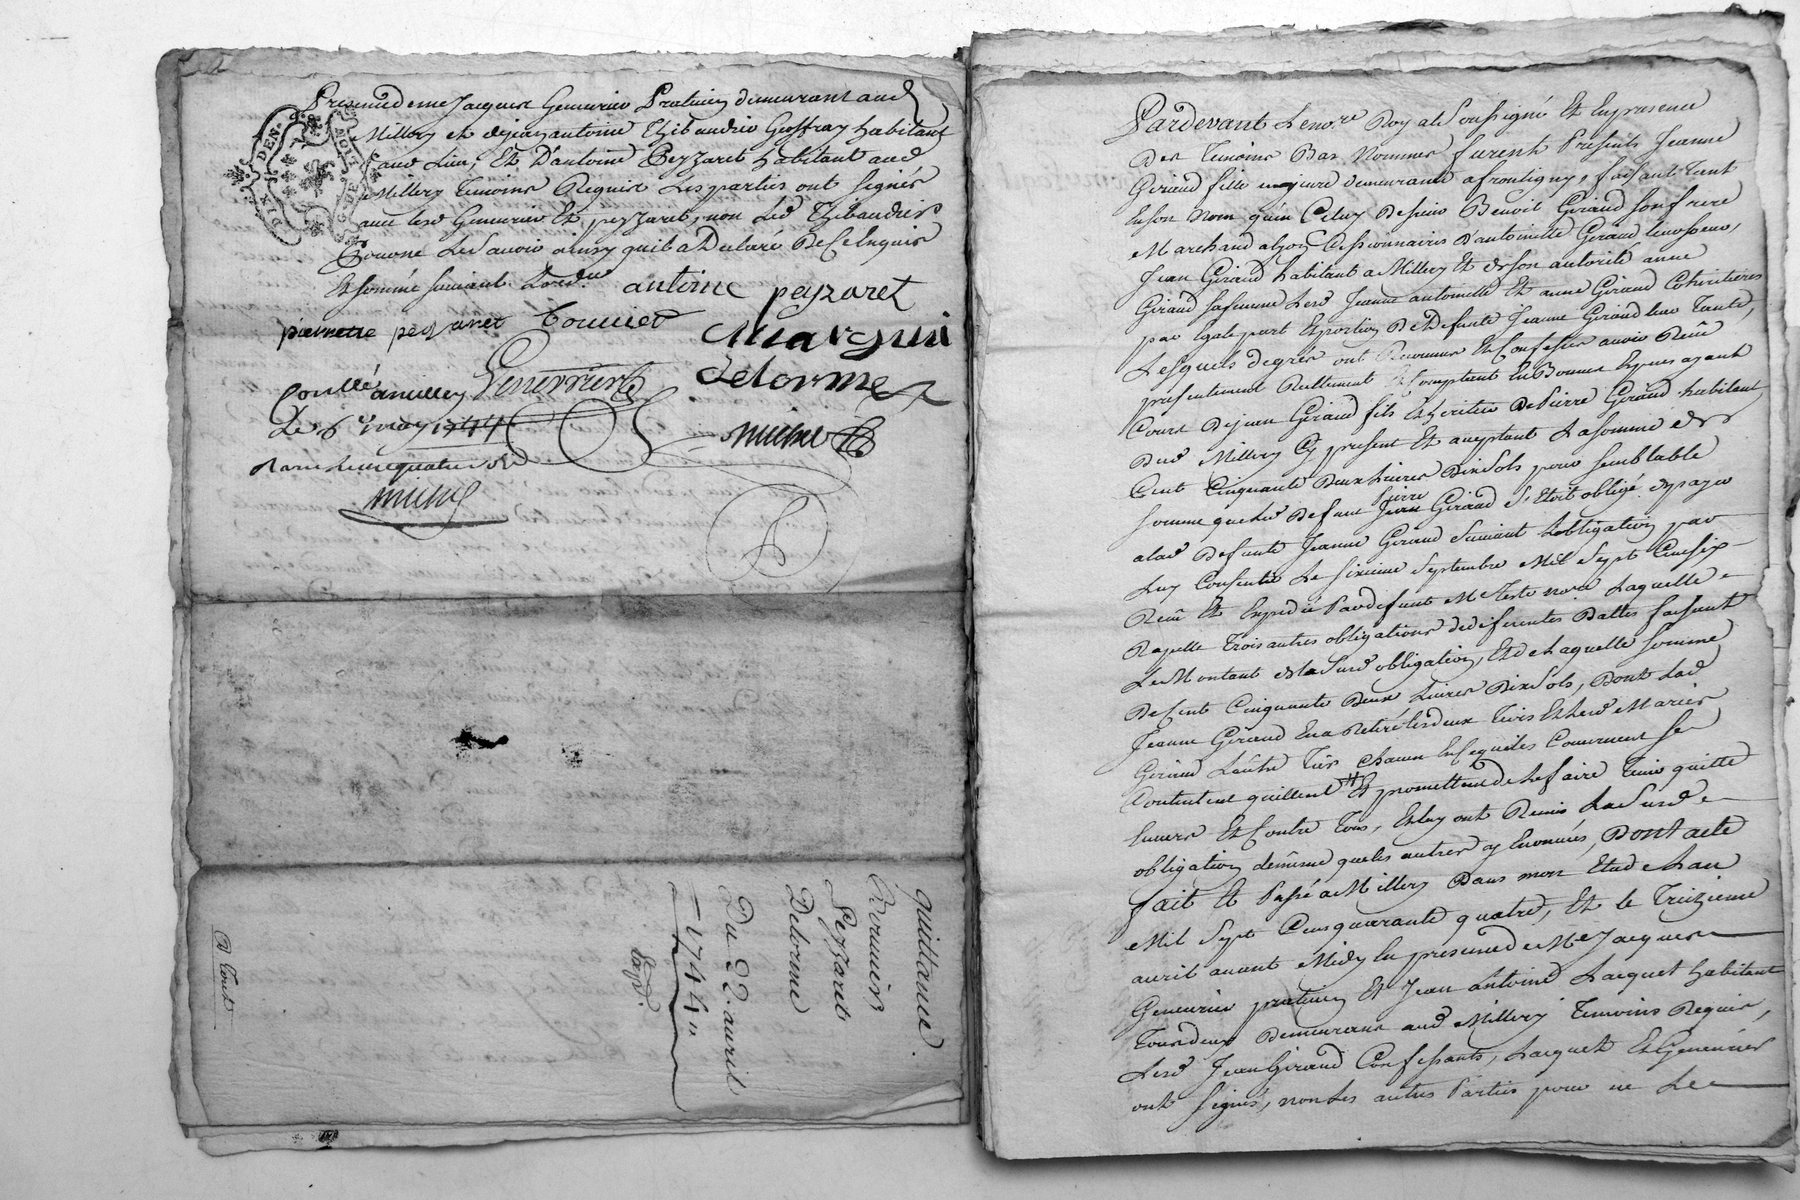 presence de me Jacques Genevrier Praticien demeurant aud
Millery et de jean antoine Thibaudier Geoffray habitant
aud Lieu, Et D'antoine Peyzaret habitant aud
Millery temoins Requis Les parties ont signés
avec lesd Genevrier Et peyzaret, non Led Thibaudier
pour ne Le Savoir ainsy quil a Declaré De ce Enquis
Et sommé suivant Lord.ce
antoine peyzaret
pierrette peyzaret
Marguin
Genevrier
Delorme
Conllé a millery
Le 6e may 1744
Michel
Reçu douze quatre sols
Michel
DIX DEN.
MOIT. G. DE
quittance
Peyzaret
Delorme
Du 22. avril
1744
Exp.
Pardevant Le no.re Royal Soussigné Et En presence
Des Temoins Bas Nommés furent Presents Jeanne
Giraud fille majeure demeurante a frontigny, faisant tant
En son Nom qu'en Celuy De sieur Benoit Giraud son frere
Marchand a Lyon Cessionnaires D'antoinette Giraud leur soeur,
Jean Giraud habitant a Millery Et de son autorité anne
Giraud sa femme Lesd Jeanne antoinette Et anne Giraud Coheritieres
par Egale part Et portion De Defunte Jeanne Giraud leur Tante,
Lesquels de gré ont Reconnu Et Confessé avoir Reçu
presentement Reellement Et Comptant En Bonnes Especes ayant
Cours De jean Giraud fils Et heritier De Pierre Giraud habitant
Dud Millery Cy present Et acceptant La somme de
Cent Cinquante Deux Livres Dix Sols pour semblable
somme que led Defunt Pierre Giraud S'Etoit obligé de payer
a lad Defunte Jeanne Giraud Suivant L'obligation par
Luy Consentie Le sixieme Septembre Mil Sept Cent six
Reçue Et Expediée Par defunt Me Teste no.re Laquelle
Rapelle Trois autres obligations de differentes Dattes faisant
Le Montant de la Susd obligation, Et de Laquelle somme
De Cent Cinquante Deux Livres Dix Sols, Dont Lad
Jeanne Giraud En a Retiré les deux tiers Et Lesd Mariés
Giraud Lautre Tiers Chacun En ce qui les Concernent Se
Contentent quittent Et promettent de Le faire Tenir quitte
Envers Et Contre Tous, Et luy ont Remis La Susd
obligation de même que les autres y Enoncées, Dont acte
fait Et Passé a Millery Dans mon Etude L'an
Mil Sept Cent quarante quatre, Et le Treizieme
avril avant Midy En presence de Me Jacques
Genevrier praticien Et Jean Antoine Lacquet habitant
Tous deux Demeurans aud Millery Temoins Requis,
Lesd Jean Giraud Confessants, Lacquet Et Genevrier
ont Signés, non Les autres Parties pour ne Le